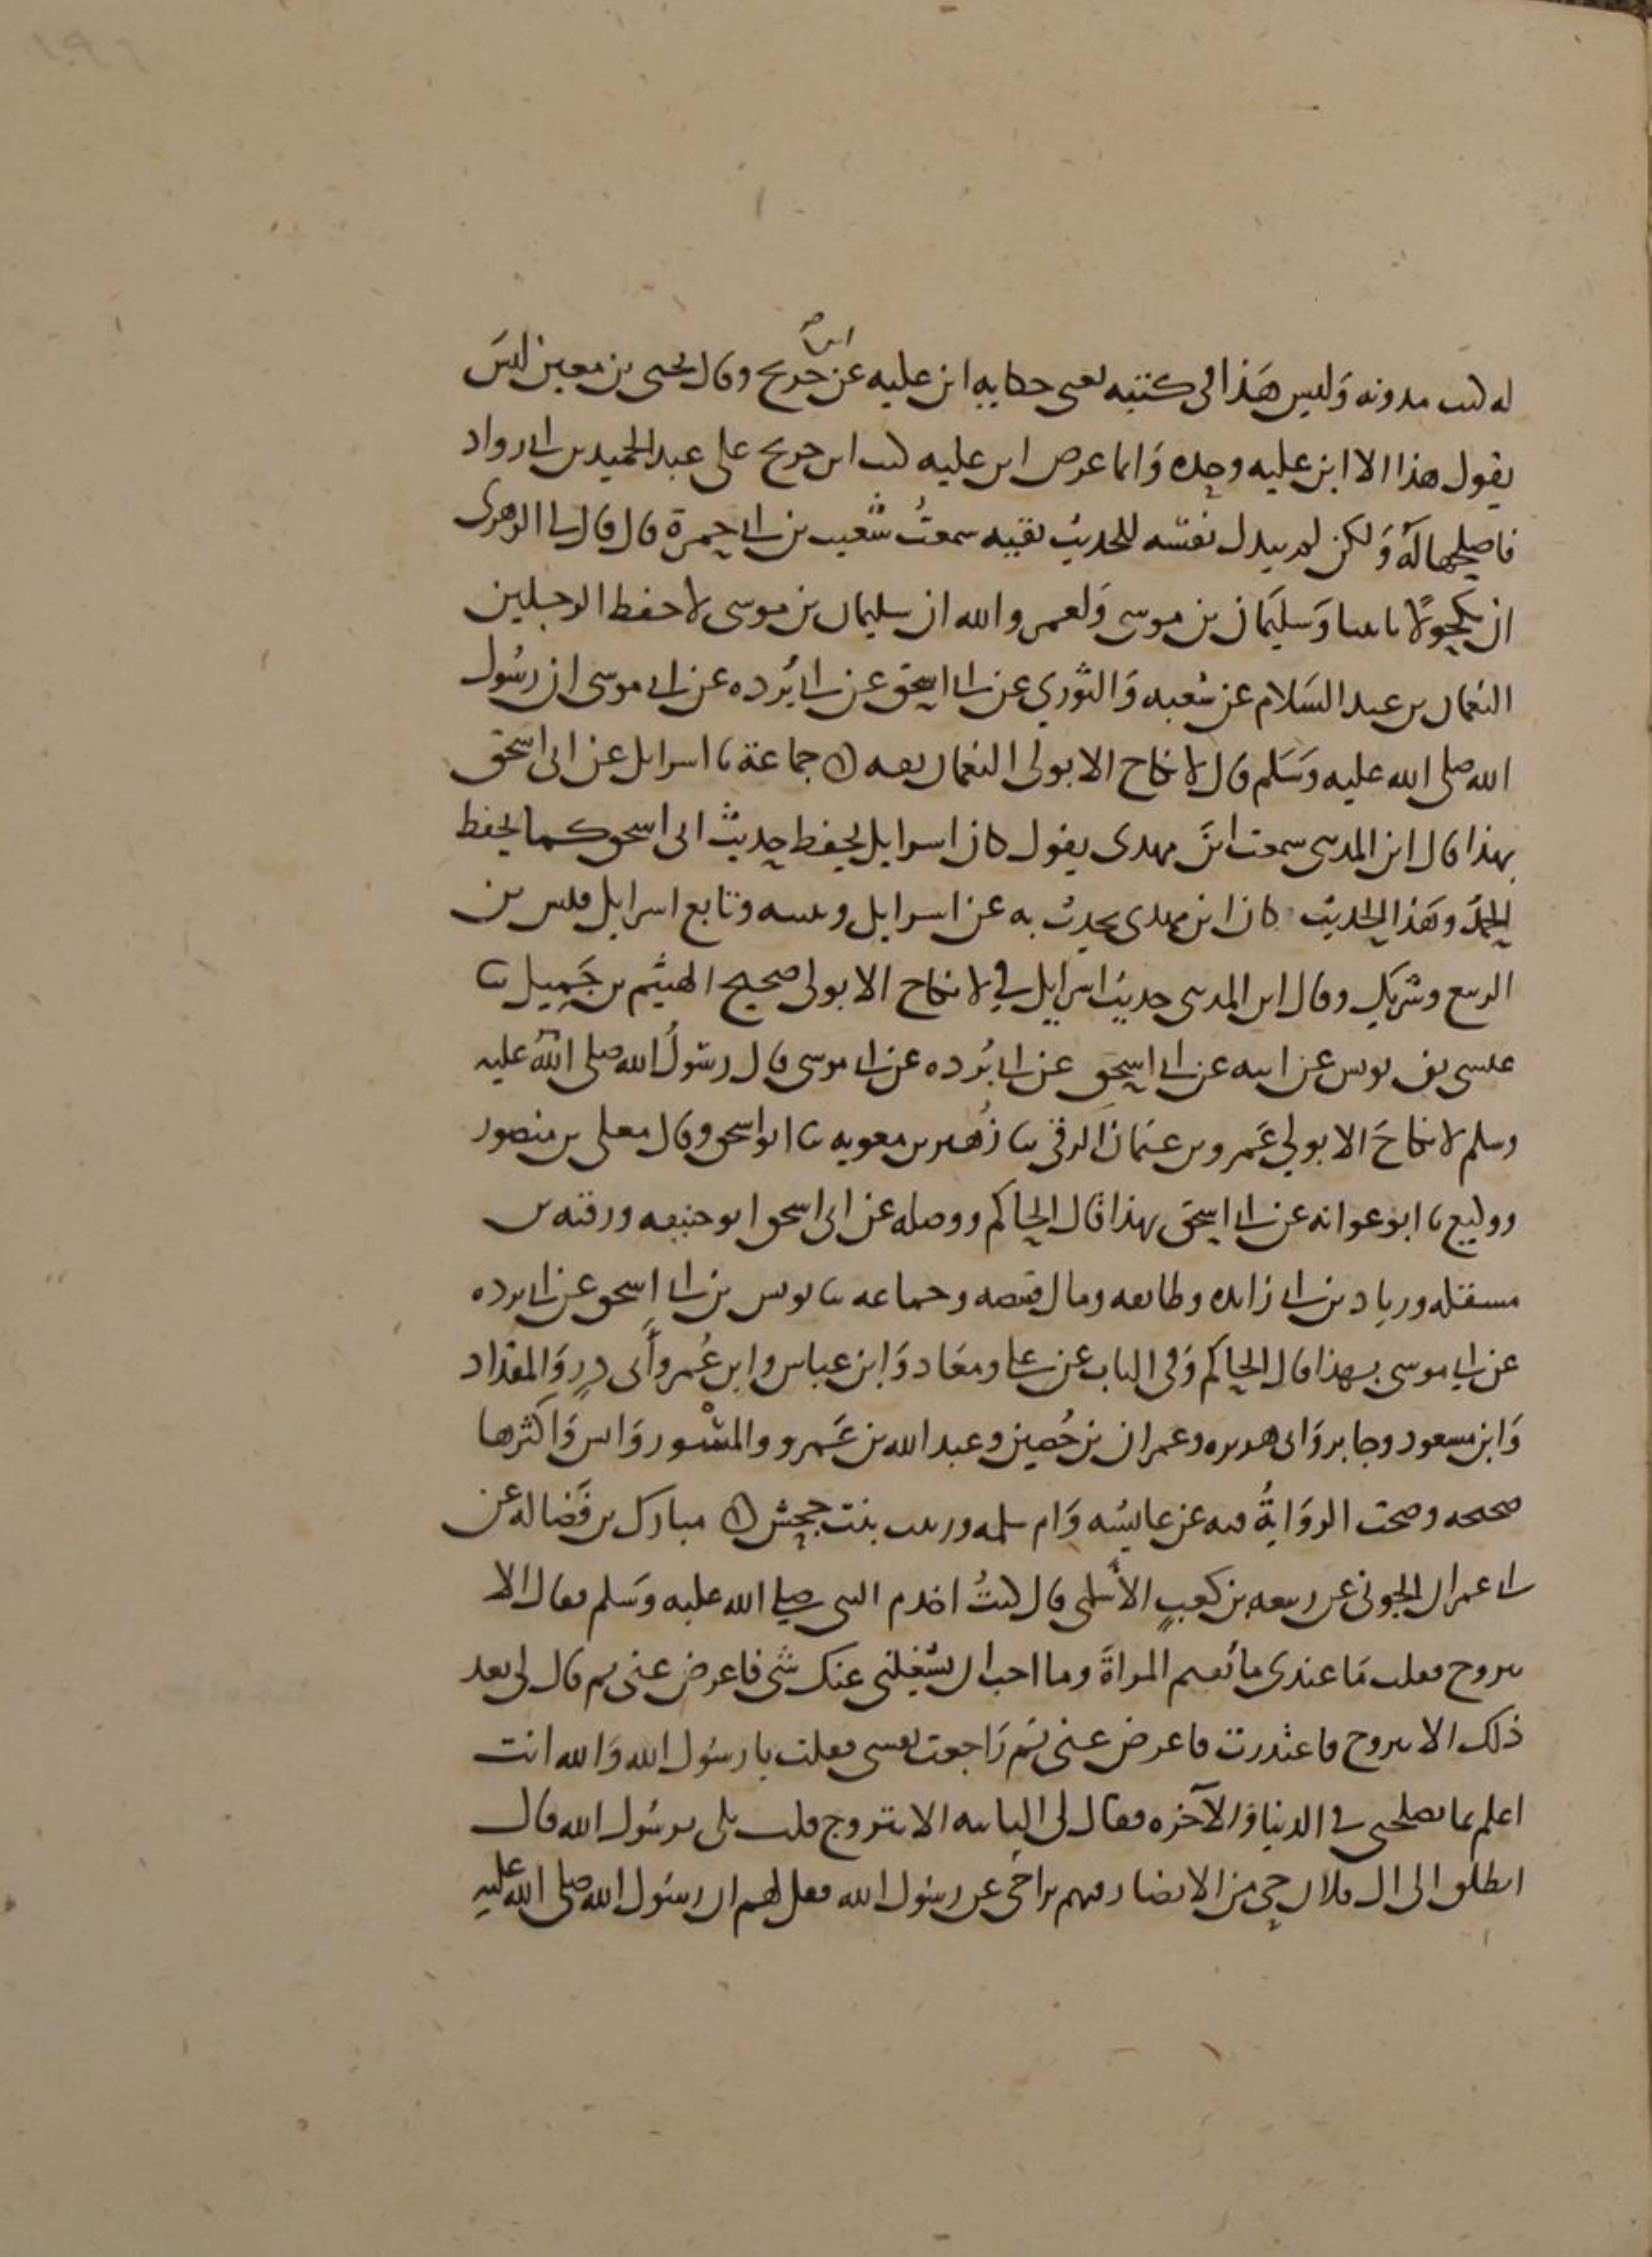 له كتب مدونه وليس هذا في كتبه يعني حكايه ابن عليه عن ابن جريج وقال يحيى بن معين ليس
يقول هذا الا ابن عليه وحده وانما عرض ابن عليه كتب ابن جريج على عبد المجيد بن ابي رواد
فاصلحها له ولكن لم يبذل نفسه للحديث بقيه سمعت شعيب بن ابي حمزة قال قال لي الزهري
ان مكحولا ياتينا وسليمان بن موسى ولعمر والله ان سليمان بن موسى لاحفظ الرجلين
النعمان بن عبد السلام عن شعبه والثوري عن ابي اسحق عن ابي برده عن ابي موسى ان رسول
الله صلى الله عليه وسلم قال لا نكاح الا بولي النعمان ثقه جماعة نا اسرايل عن ابي اسحق
بهذا قال ابن المديني سمعت ابن مهدي يقول كان اسرايل يحفظ حديث ابي اسحق كما يحفظ
الحمد وهذا الحديث كان ابن مهدي يحدث به عن اسرايل ويثبته وتابع اسرايل قيس بن
الربيع وشريك وقال ابن المديني حديث اسرايل في لا نكاح الا بولي صحيح الهيثم بن جميل ثنا
عيسى بن يونس عن ابيه عن ابي اسحق عن ابي برده عن ابي موسى قال رسول الله صلى الله عليه
وسلم لا نكاح الا بولي عمرو بن عثمان الرقي ثنا زهير بن معويه ثنا ابو اسحق وقال معلى بن منصور
ووكيع نا ابو عوانه عن ابي اسحق بهذا قال الحاكم ووصله عن ابي اسحق ابو حنيفه ورقبه بن
مسقله وزياد بن ابي زائده وطائفه وقال قبيصه وجماعه ثنا يونس بن ابي اسحق عن ابي برده
عن ابي موسى بهذا قال الحاكم وفي الباب عن علي ومعاذ وابن عباس وابن عمر وأبي ذر والمقداد
وابن مسعود وجابر وابي هريره وعمران بن حصين وعبد الله بن عمرو والمسور وانس واكثرها
صحيحه وصحت الروايةُ فيه عن عايشه وام سلمه وزينب بنت جحش مبارك بن فضاله عن
ابي عمران الجوني عن ربيعه بن كعبٍ الأسلمي قال كنتُ اخدم النبي صلى الله عليه وسلم فقال الا
تزوج فقلت ما عندي ما تُقيم المراةَ وما احب ان يشغلني عنك شي فاعرض عني ثم قال لي بعد
ذلك الا تزوج فاعتذرت فاعرض عني ثم راجعت نفسي فقلت يا رسول الله والله انت
اعلم بما يصلحني في الدنيا والآخره فقال لي الثانيه الا تتزوج قلت بلى يرسول الله قال
انطلق الى ال فلان حي من الانصار فيهم تراخي عن رسول الله فقل لهم ان رسول الله صلى الله عليه